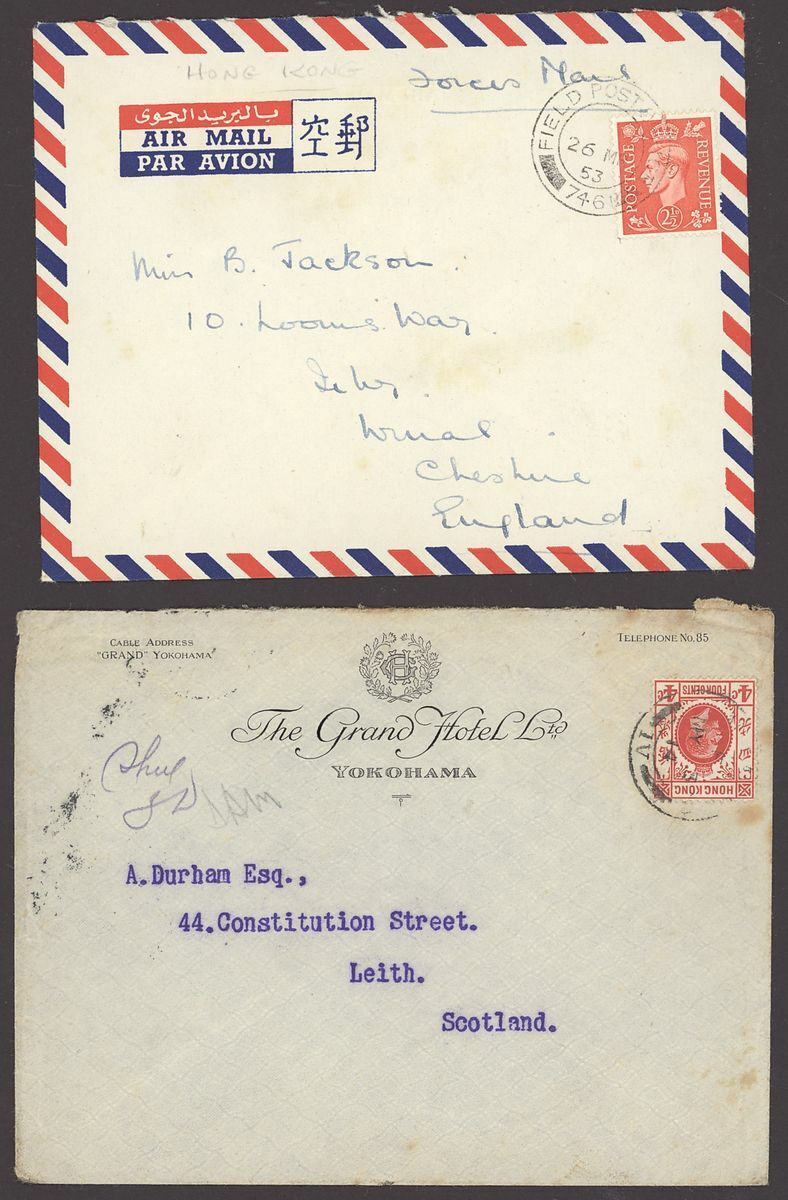 HONG KONG
Forces Mail
بالبريد الجوى
AIR MAIL
PAR AVION
空郵
FIELD POST
26 M
53
746
POSTAGE
REVENUE
2½D
Miss B. Jackson.
10. Looms Way.
Irby.
Wirral.
Cheshire
England
CABLE ADDRESS
"GRAND" YOKOHAMA
TELEPHONE No. 85
GH
The Grand Hotel Ltd
YOKOHAMA
HONG KONG
FOUR CENTS
4c
A.Durham Esq.,
44.Constitution Street.
Leith.
Scotland.